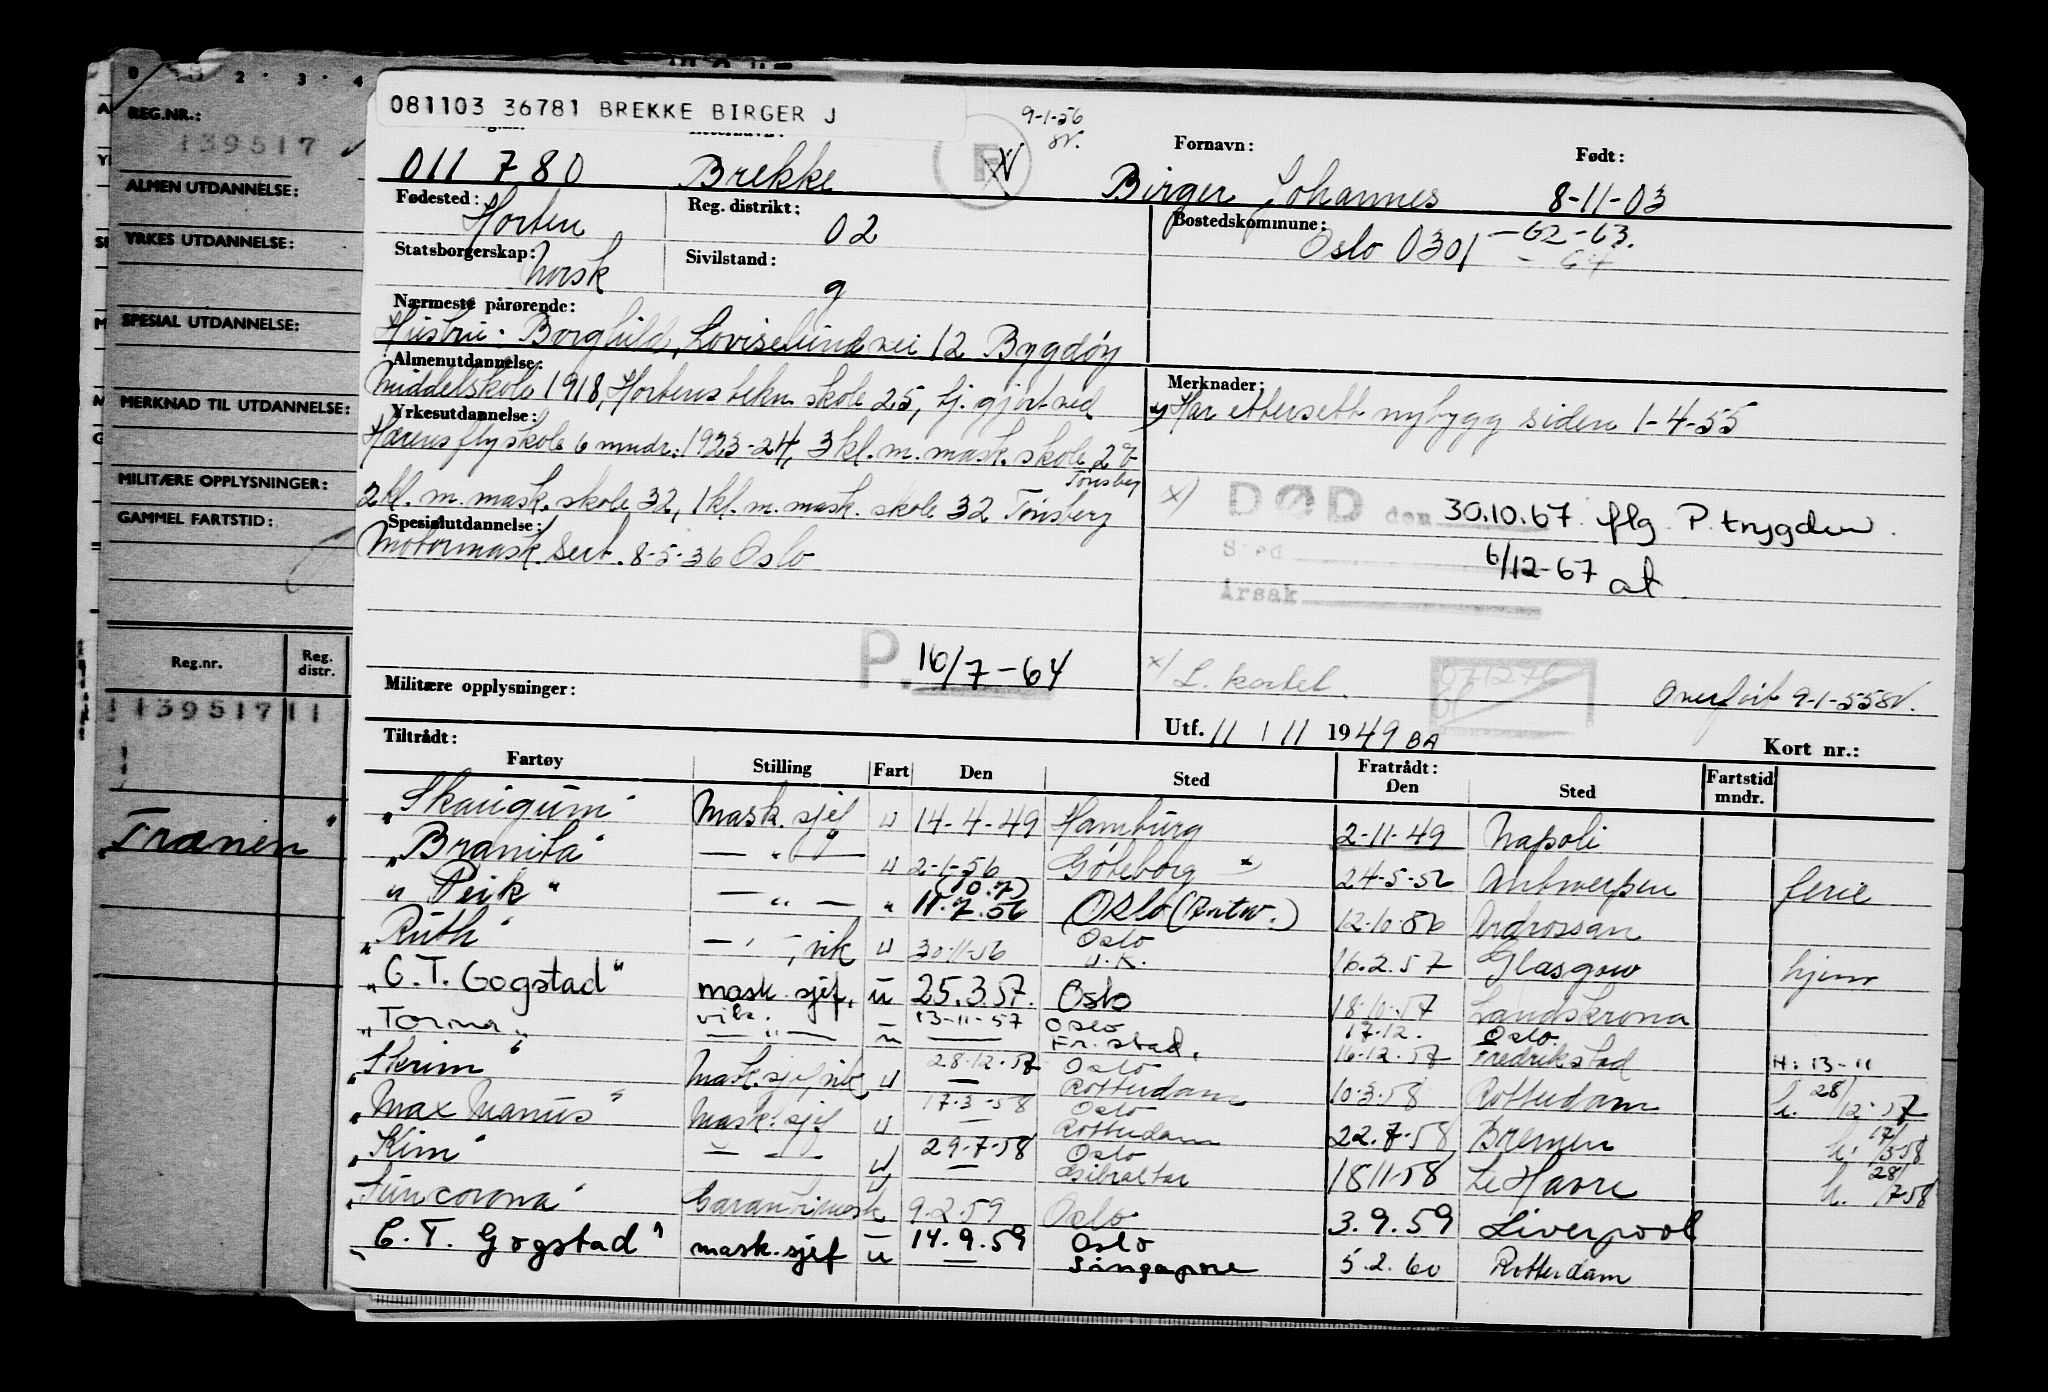 0 2 · 3 · 4
REG.NR.:
139517
ALMEN UTDANNELSE:
YRKES UTDANNELSE:
SPESIAL UTDANNELSE:
MERKNAD TIL UTDANNELSE:
MILITÆRE OPPLYSNINGER:
GAMMEL FARTSTID:
Reg.nr. Reg. distr.
139517 11
"Tranen"
081103 36781 BREKKE BIRGER J
9-1-56
Fornavn: Født:
011 780 Brekke Birger Johannes 8-11-03
Fødested: Reg. distrikt: Bostedskommune:
Horten 02 Oslo 0301 -62-63.
- 64
Statsborgerskap: Sivilstand:
Norsk g
Nærmeste pårørende:
Hustru: Borghild, Loviselund vei 12 Bygdøy
Almenutdannelse:
Middelskole 1918, Hortens tekn. skole 25, tj. gjort ved
Yrkesutdannelse:
Hærens flyskole 6 mndr. 1923-24, 3 kl. m. mask. skole
Tønsberg
2 kl. m. mask. skole 32, 1 kl. m. mask. skole 32 Tønsberg
Spesialutdannelse:
Motormask. Sert. 8-5-36 Oslo
P. 16/7-64
Militære opplysninger:
Merknader:
Har ettersett nybygg siden 1-4-55
x) DØD den 30.10.67. flg. P. trygden.
Sted 6/12-67 at
Årsak
x/ L. kortet. 071276
Overført 9-1-55
Utf. 11 / 11 1949 BA Kort nr.:
Tiltrådt: Fratrådt:
Fartøy Stilling Fart Den Sted Den Sted Fartstid mndr.
"Skaugum" Mask.sjef u 14-4-49 Hamburg 2-11-49 Napoli
"Branita" — " — u 2-1-56 Göteborg 24-5-56 Antwerpen ferie
"Peik" — " — " (10.7) 11.7.56 Oslo (Antw.) 12-10-56 Ardrossan
"Ruth" — " — vik u 30-11-56 Oslo U.K. 16.2.57 Glasgow hjem
"C. T. Gogstad" mask. sjef. u 25.3.57. Oslo 18-10-57 Landskrona
"Torma" vik. — " — u 13-11-57 — Oslo Fr.stad. 17.12. Oslo
16-12-57 Fredrikstad H: 13-11
"Skrim" Mask.sjef, vik u 28-12-57 — Oslo Rotterdam 10-3-58 Rotterdam h. 28/12-57
"Max Manus" Mask. sjef u 17-3-58 — Oslo Rotterdam 22.7-58 Bremen h. 17/3-58
"Kim" — " — u 29-7-58 — Oslo Gibraltar 18-11-58 Le Havre h. 28/7-58
"Suncorona" Garantimask u 9-2-59 Oslo 3.9.59 Liverpool
"C. T. Gogstad" mask.sjef u 14.9.59 — Oslo Singapore 5.2.60 Rotterdam